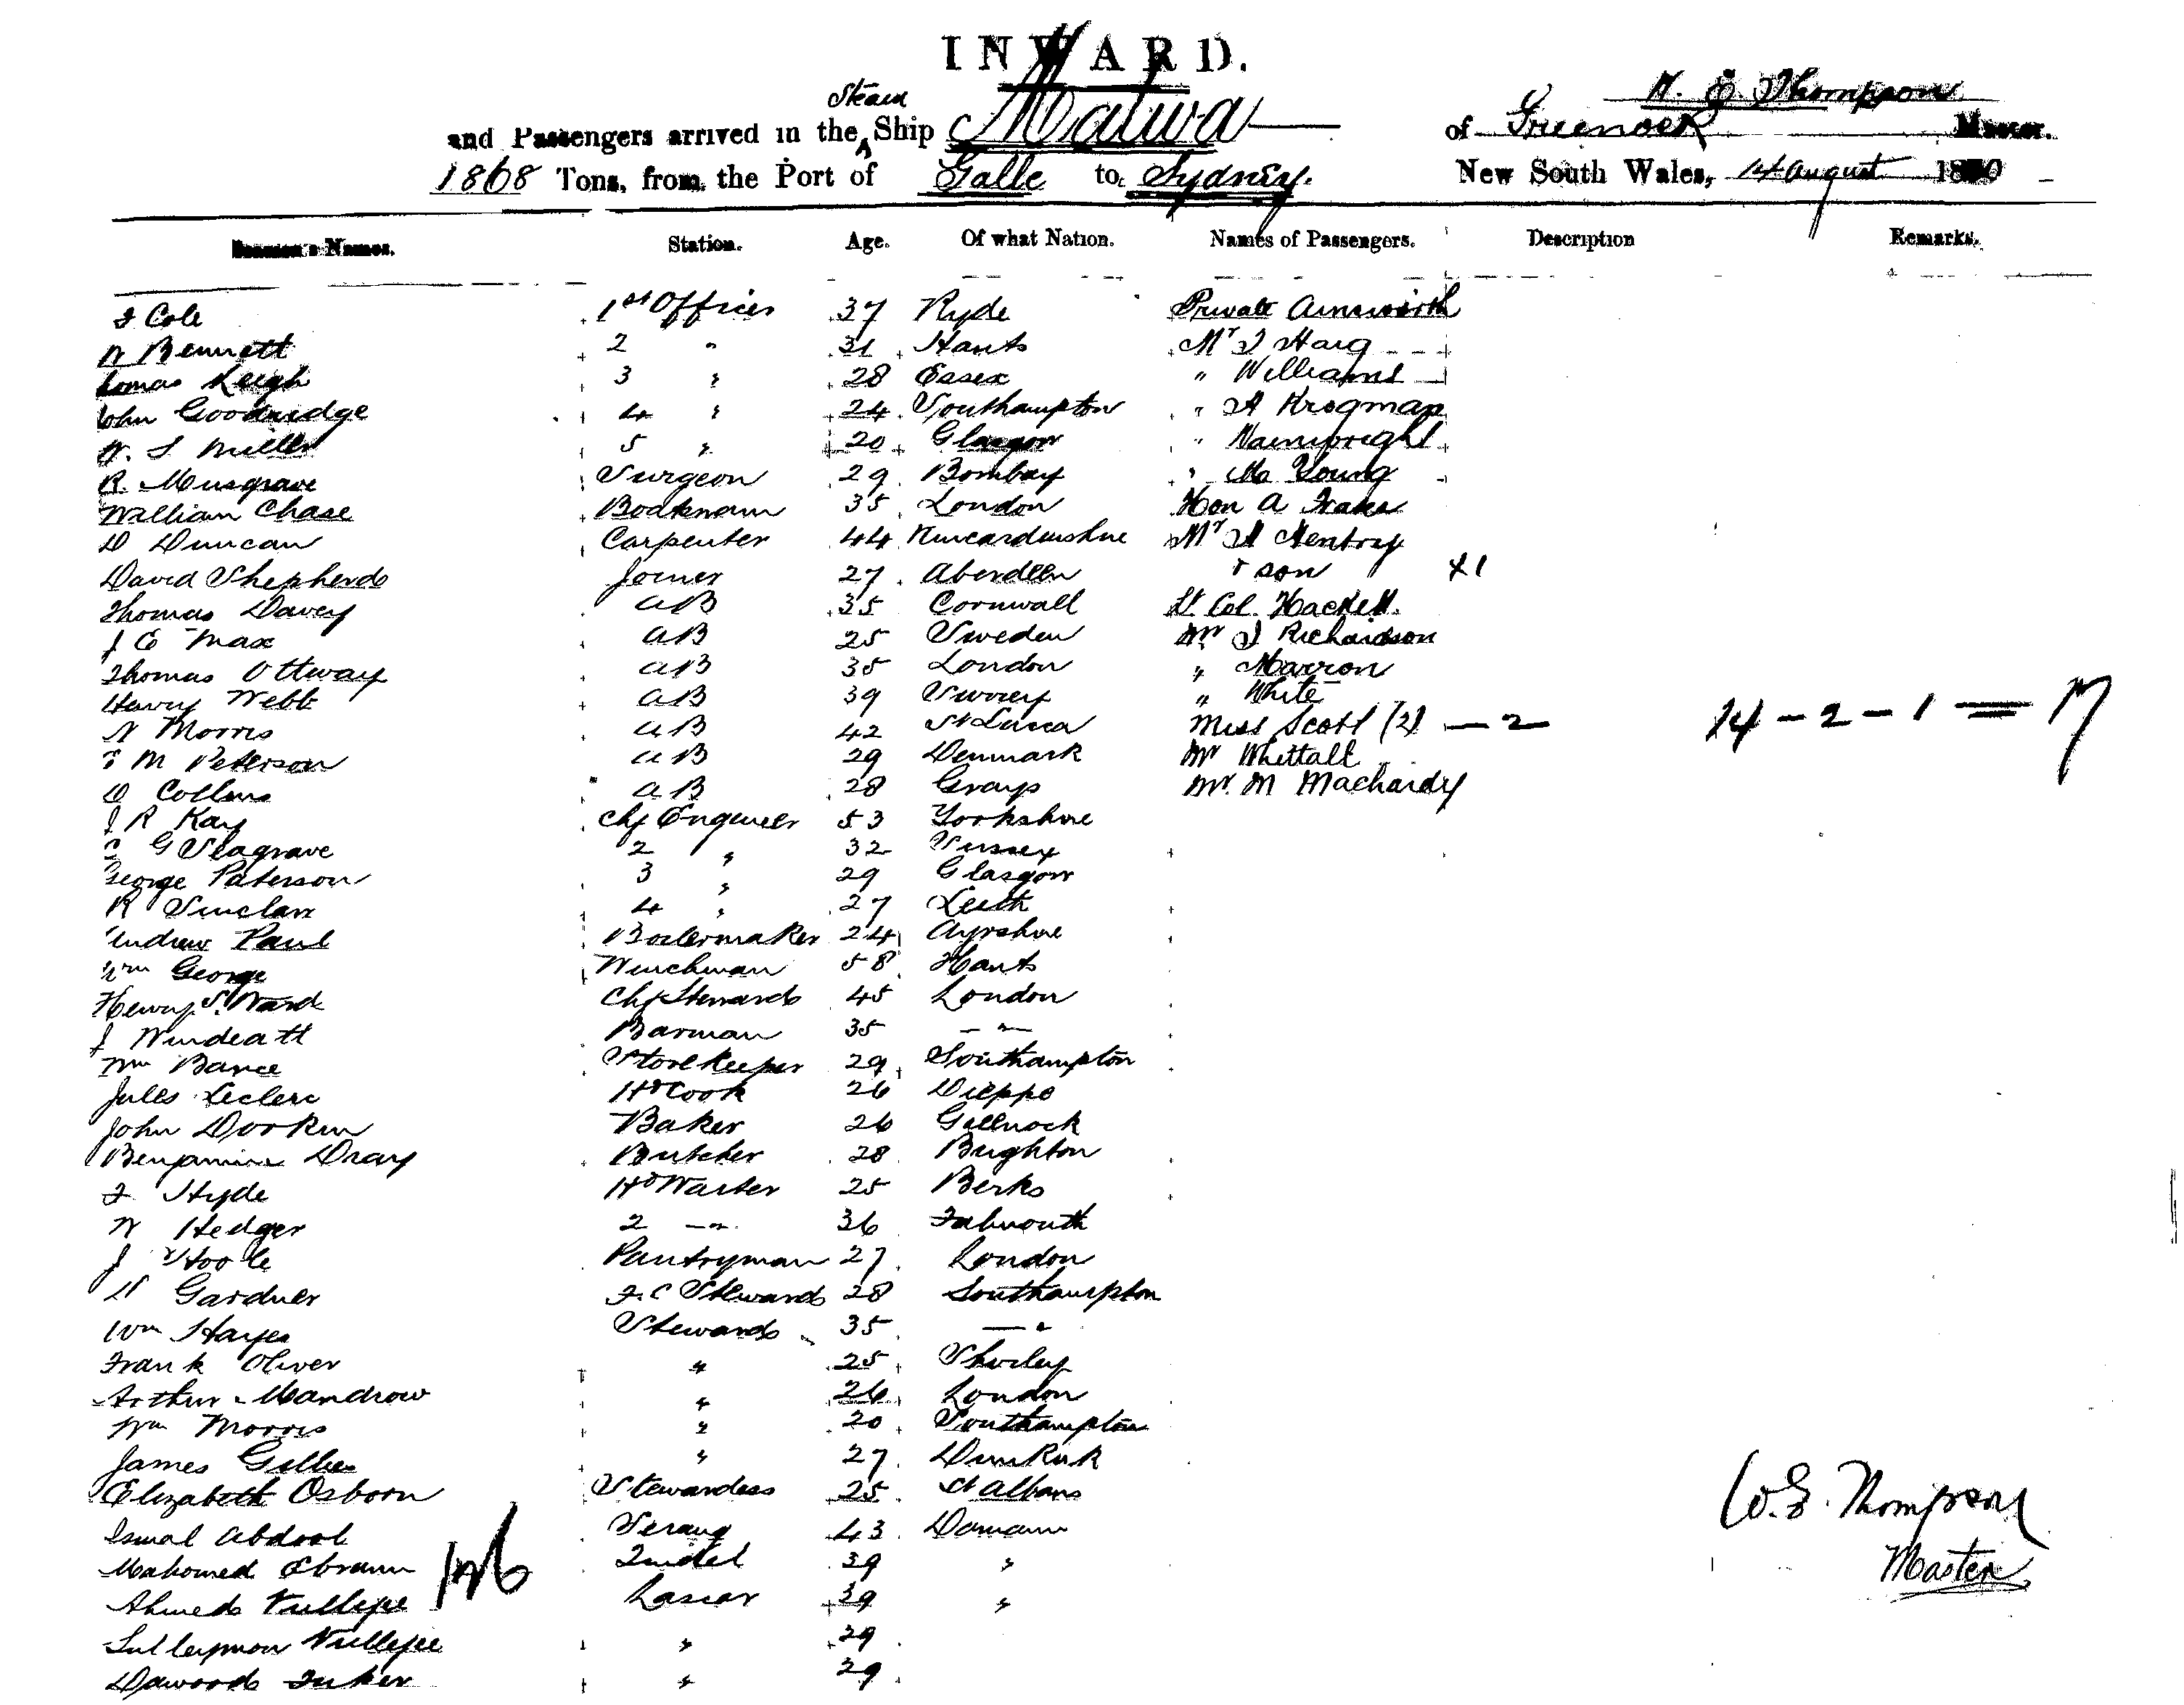 INWARD.
W. E. Thompson
Steam
and Passengers arrived in the Ship Malwa of Greenock Master.
1868 Tons, from the Port of Galle to Sydney. New South Wales, 14 August 18
Seaman's Names. Station. Age. Of what Nation. Names of Passengers. Description Remarks.
F Cole 1st Officer 37 Ryde Private
W Bennett 2 " 31 Hants Mr J Haig
homas Leigh 3 " 28 Essex " Williams
John Goodridge 4 " 24 Southampton " A Krogman
W. S. Miller 5 " 20 Glasgow " Wainwright
R. Musgrave Surgeon 29 Bombay " Mc Young
William Chase Boatsman 35 London Hon A
D Duncan Carpenter 44 Kincardinshire Mr
David Shepherd Joiner 27 Aberdeen & son x1
Thomas Davey AB 35 Cornwall Lt Col. Hackett.
J E Max AB 25 Sweden Mr J Richardson
Thomas Ottway AB 35 London " Marron
Henry Webb AB 39 Surrey " White
W Morris AB 42 St Lucca Miss Scott (2) — 2 14 - 2 - 1 = 17
M Peterson AB 29 Denmark Mr Whittall
D Collins AB 28 Grays Mr. M Machardy
J R Kay Chf Engineer 53 Yorkshire
G Seagrave 2 " 32 Sussex
George Paterson 3 " 29 Glasgow
R Sinclair 4 " 27 Leith
Andrew Paul Boilermaker 24 Ayrshire
Wm George Winchman 58 Hants
Henry S. Ward Chf Steward 45 London
J Windeatt Barman 35 — " —
Wm Bance Storekeeper 29 Southampton
Jules Leclerc Hd Cook 26 Dieppe
John Dorkin Baker 26
Benjamin Dray Butcher 28 Brighton
F Hyde Hd Waiter 25 Berks
W Hedger 2 — " — 36 Falmouth
J Hoole Pantryman 27 London
H Gardner F. C Steward 28 Southampton
Wm Hayes Steward 35 — "
Frank Oliver " 25 Shirley
Arthur Mandrow " 26 London
Wm Morris " 20 Southampton
James Gillies " 27 Dunkirk
Elizabeth Osborn Stewardess 25 St Albans
Ismal Abdool Serang 43 Damaun
Mahomed Ebraim Tindel 39 "
Ahmed Vullejee Lascar 39 "
Sulleymon Vullejee " 29
Dawood " 29
146
W. E. Thompson
Master